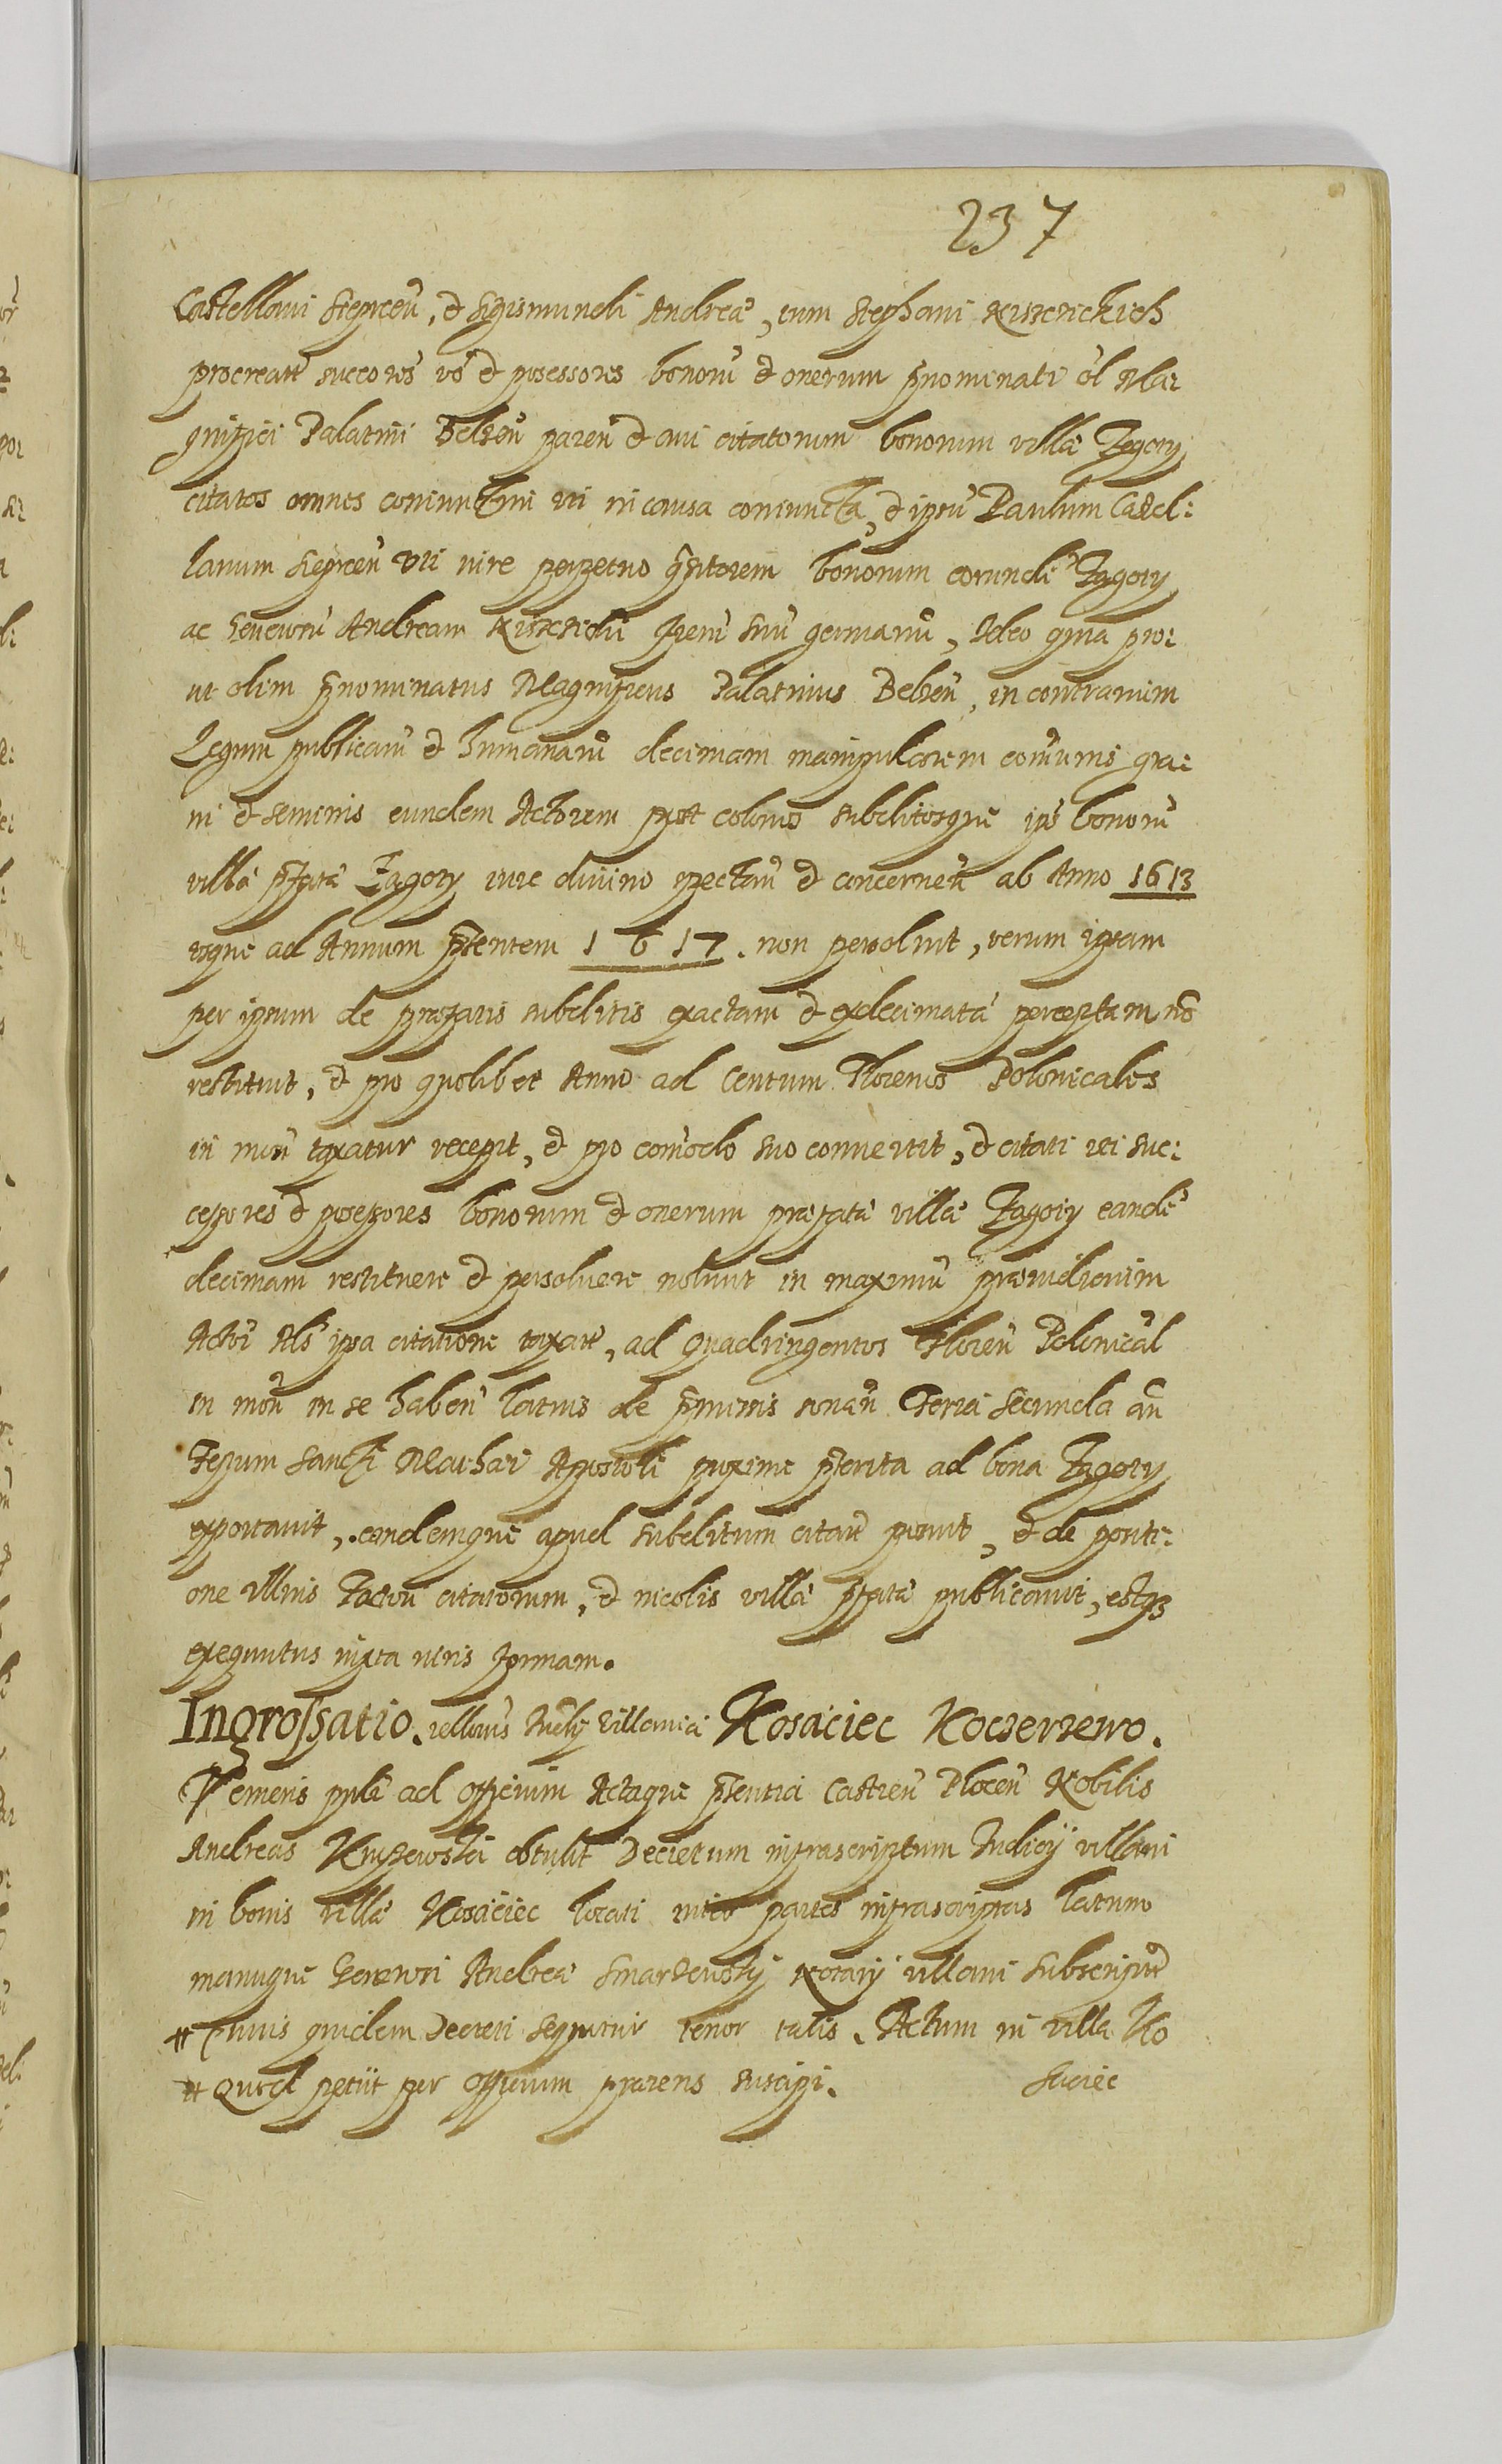 237
Castellani Sieprceñ, et Sigismundi Andreæ, eum Stephani
procreatt succores vo et posessores bonorũ et onerum p̃nominati ol̃ Ma:
gnifici Palatini Belzeñ pareñ et aui citatorum bonorum villæ Zagory
citatos omnes coniunctim uti in causa coniuncta, et ipsũ Paulum Castel:
lanum Sieprceñ uti iure perpetuo bonorum eorundẽ Zagory
ac Generosũ Andream suũ germanũ, Ideo quia pro:
ut olim p̃nominatus Magnificus Palatinus Belzeñ, in contrarium
Legum publicarũ et humanarũ decimam manipularem cõmunis gra:
ni et seminis eundem Actorem post colonos subditosque ips bonorũ
villæ p̃fatæ Zagory iure diuino spectañ et concerneñ ab Anno 1613
usque ad Annum p̃sentem 1617. non persoluit, verum ipsam
per ipsum de præfatis subditis exactam et exdecimatã perceptam nõ
restituit, et pro quolibet Anno ad Centum Florenos Polonicales
in moñ taxatur recepit, et pro cõmodo suo conuertit, et citati uti suc:
cessores et posessores bonorum et onerum præfatæ villæ Zagory eandẽ
decimam restituere et persoluere nolunt in maximũ præiudicium
Actoris ipsa citatione taxatt, ad Quadringentos Floreñ Polonical
in moñ in se habeñ latius de p̃missis sonañ Feria Secunda añ
Festum Sancti Mathæi Apostoli proxime p̃terita ad bona Zagory
exportauit, eandemque apud subditum citatt posuit, et de positi:
one illius factorĩ citatorum, et incolis villæ p̃fatæ publicauit, estqz
exequutus iuxta iuris formam.
Ingrossatio. Villanici Kosaciec Koczerzewo.
Veniens psnlr ad Officium Actaque p̃sentia Castreñ Ploceñ Nobilis
Andreas obtulit Decretum infrascriptum Iudicij villani
in bonis villæ Kosaciec locati inter partes infrascriptas latum
manuque Generosi Andreæ Smardzewskij Notarij villani Subscriptt
# Cuius quidem Decreti sequitur tenor talis. Actum in villa Ko
# Quod petiit per Officium præsens suscipi. saciec